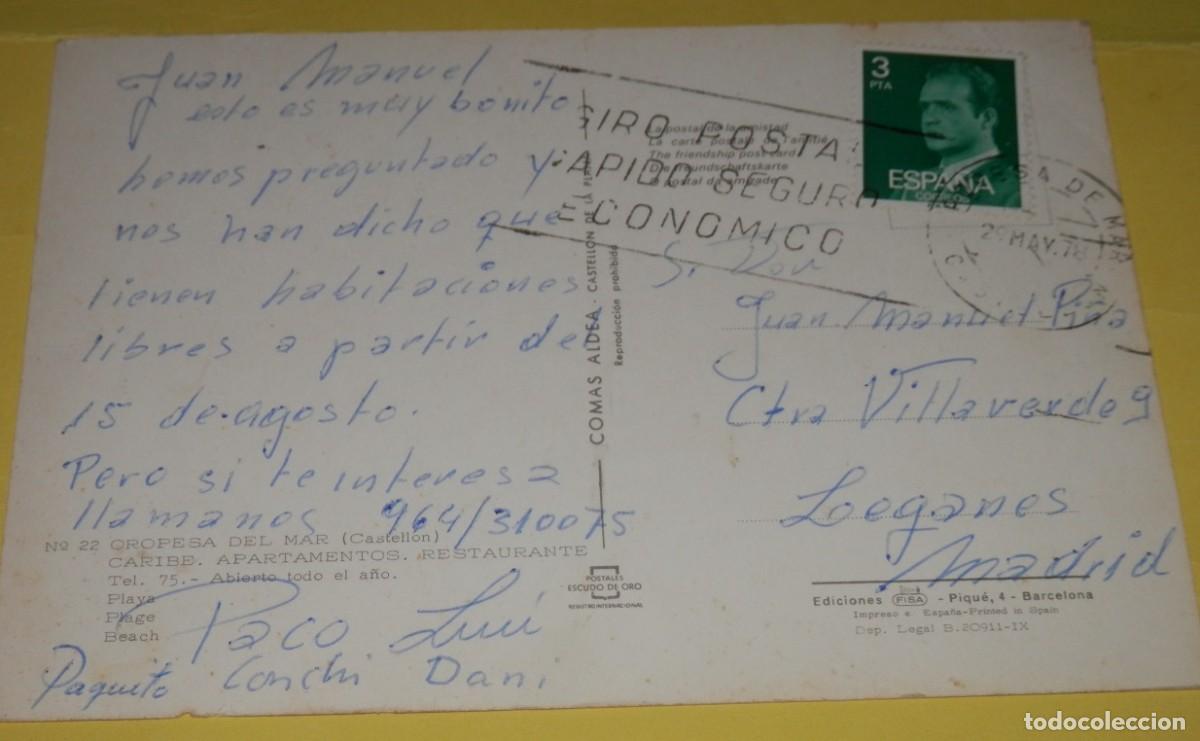 Juan Manuel
esto es muy bonito
hemos preguntado y
nos han dicho que
tienen habitaciones
libres a partir del
15 de agosto.
Pero si te interesa
llamanos 964/310075
Nº 22 OROPESA DEL MAR (Castellón)
CARIBE. APARTAMENTOS. RESTAURANTE
Tel. 75.- Abierto todo el año.
Playa
Plage
Beach
Paco Luci
Paquito Conchi Dani
COMAS ALDEA - CASTELLON DE LA PLANA
Reproducción prohibida
POSTALES
ESCUDO DE ORO
REGISTRO INTERNACIONAL
La postal de la amistad
La carte postale de l'amitié
The friendship post card
Die freundschaftskarte
GIRO POSTAL
RAPIDO SEGURO
ECONOMICO
3
PTA
ESPAÑA
CORREOS
DE MAR
29 MAY. 78
Sr Don
Juan Manuel
Ctra Villaverde 9
Leganes
Madrid
Ediciones FISA - Piqué, 4 - Barcelona
Impreso e España-Printed in Spain
Dep. Legal B.20911-IX
todocoleccion